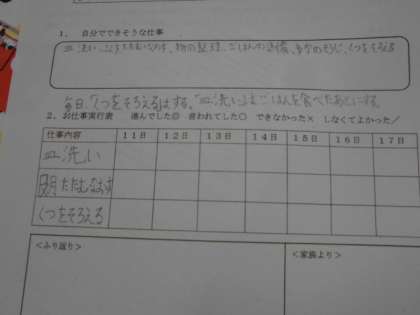 1. 自分でできそうな仕事
皿洗い、ふくをたたむなおす、物の整理、ごはんの準備、家のそうじ、くつをそろえる
毎日、「くつをそろえる」はする。「皿洗い」はごはんを食べたあとにする。
2. お仕事実行表 進んでした◎ 言われてした○ できなかった× しなくてよかった/
仕事内容 11日 12日 13日 14日 15日 16日 17日
皿洗い
服たたむなおす
くつをそろえる
<ふり返り> <家族より>